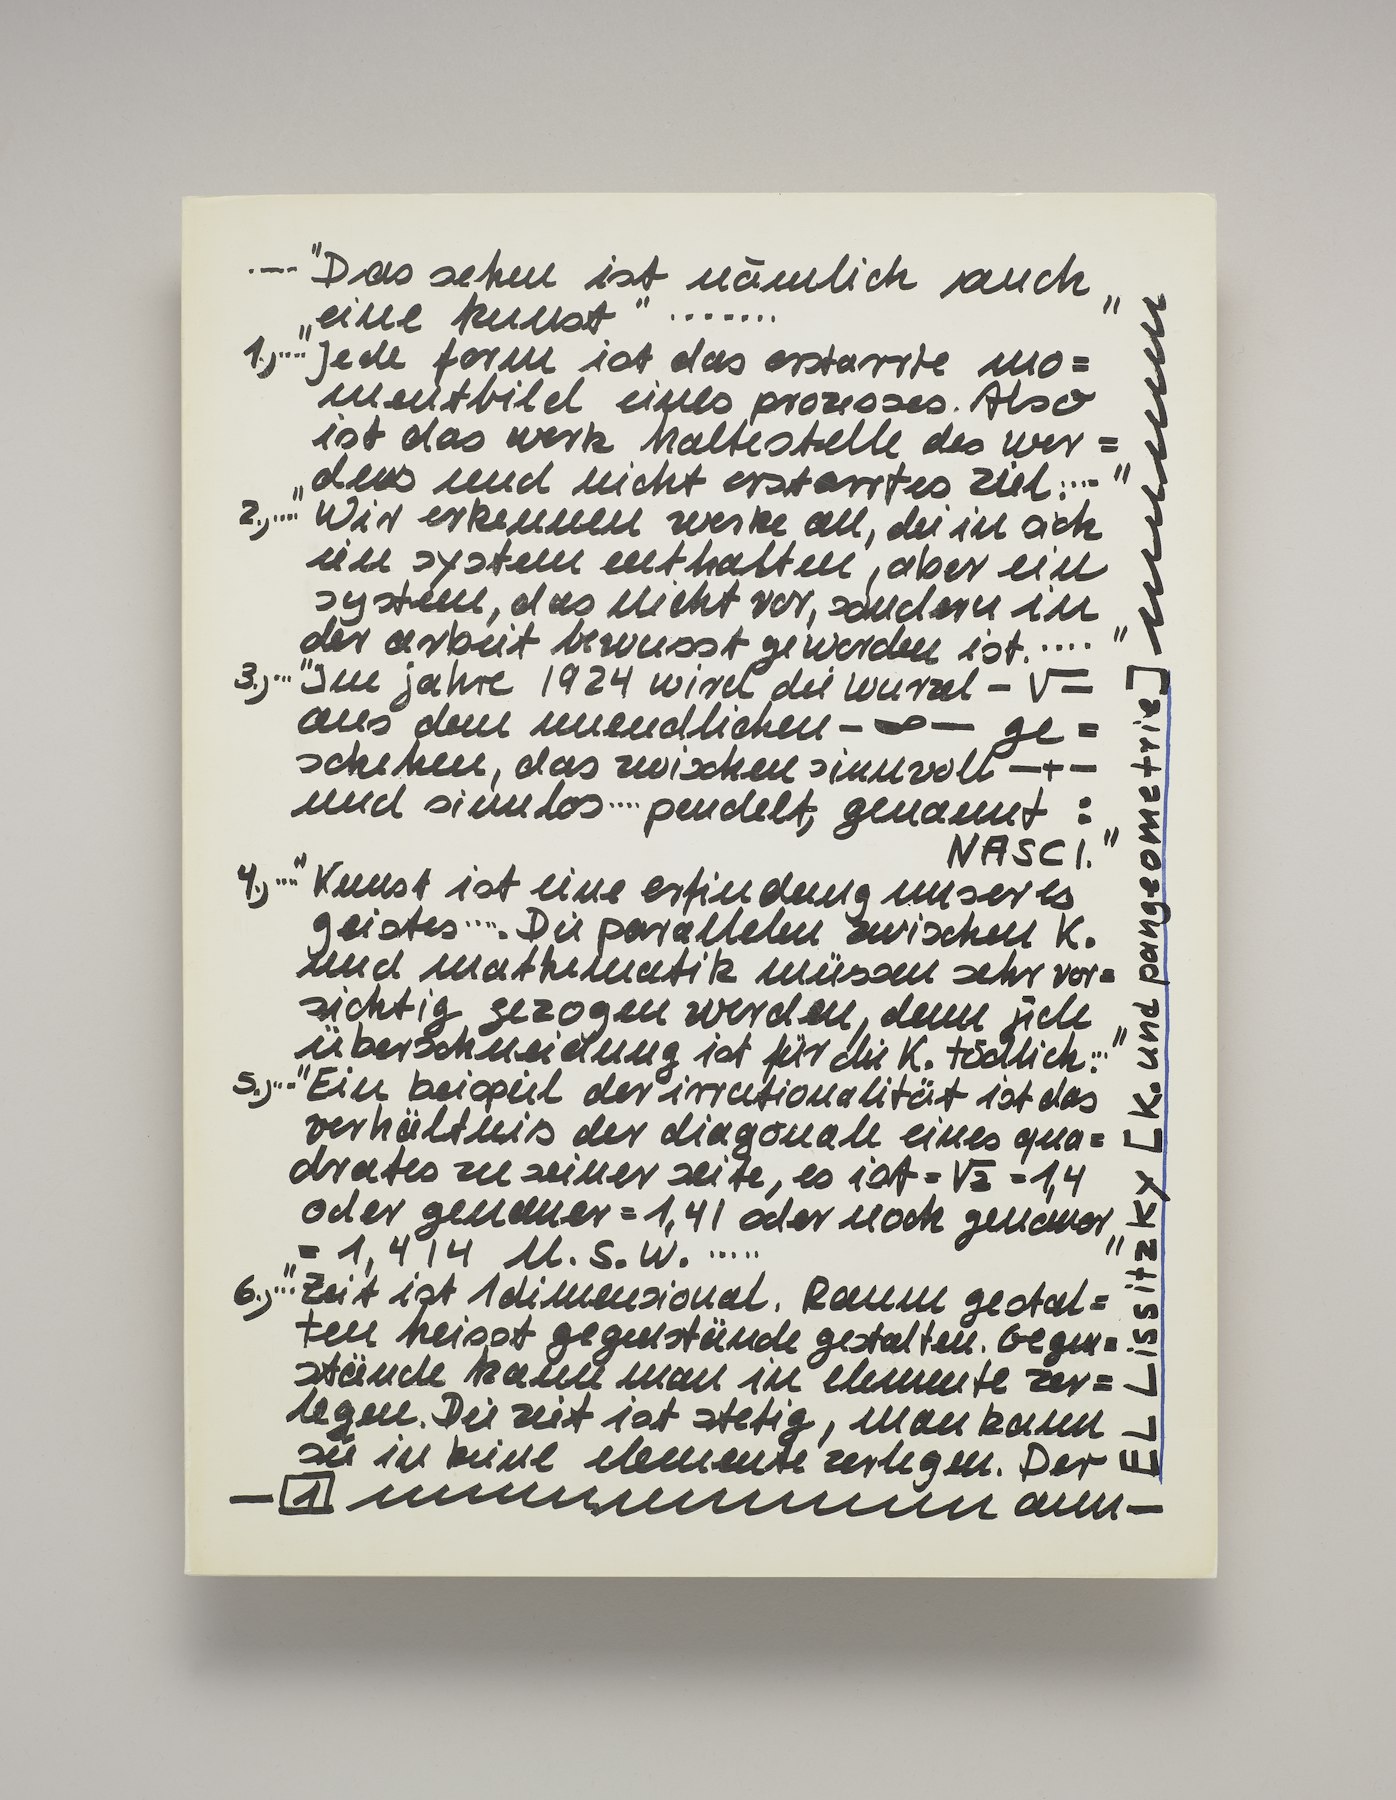 .–-- "Das sehen ist nämlich auch
eine kunst" ....... "
1.,..." Jede form ist das erstarrte mo=
mentbild eines prozesses. Also
ist das werk haltestelle des wer=
dens und nicht erstarrtes ziel...."
2.,...." Wir erkennen werke an, die in sich
ein system enthalten, aber ein
system, das nicht vor, sondern in
der arbeit bewusst geworden ist. ...."
3.,..."Im jahre 1924 wird die wurzel – √ –
aus dem unendlichen – ∞ – ge=
schehen, das zwischen sinnvoll – + –
und sinnlos.... pendelt, genannt :
NASCI."
4.,..." Kunst ist eine erfindung unseres
geistes..... Die parallelen zwischen K.
und mathematik müssen sehr vor=
sichtig gezogen werden, denn jede
überschneidung ist für die K. tödlich..."
5.,..."Ein beispiel der irrationalität ist das
verhältnis der diagonale eines qua=
drates zu seiner seite, es ist = √2 = 1,4
oder genauer = 1,41 oder noch genauer
= 1,414 U.S.W. ..... "
6.,..."Zeit ist 1dimensional. Raum gestal=
ten heisst gegenstände gestalten. Gegen=
stände kann man in elemente zer=
legen. Die zeit ist stetig, man kann
sie in keine elemente zerlegen. Der
– 1 aum –
EL Lissitzky [K. und pangeometrie]